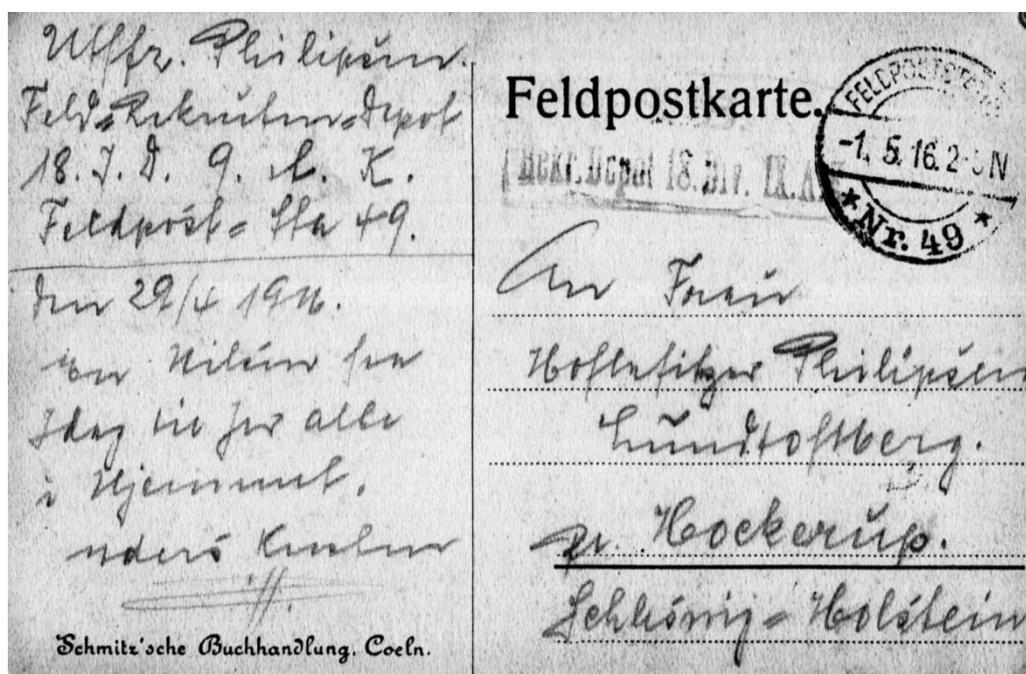 Utffz. Philipsen
Feld=Rekruten=Depot
18. J. D. 9. A. K.
Feldpost= Sta 49.
den 29/4 1916.
En Hilsen fra
Idag til Jer alle
i Hjemmet.
Schmitz'sche Buchhandlung, Coeln.
Feldpostkarte.
Rekr. Depot 18. Div. IX. A.
FELDPOSTSTATION
-1. 5. 16. 2-3 N
* Nr. 49 *
An Frau
Hofbesitzer Philipsen
Lundtoftberg.
pr. Hockerup.
Schleswig= Holstein